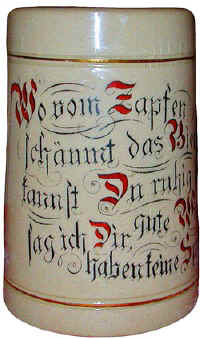 Wo vom Zapfen
schäumt das Bie
kannst Du ruhig
sag ich Dir gute
haben keine